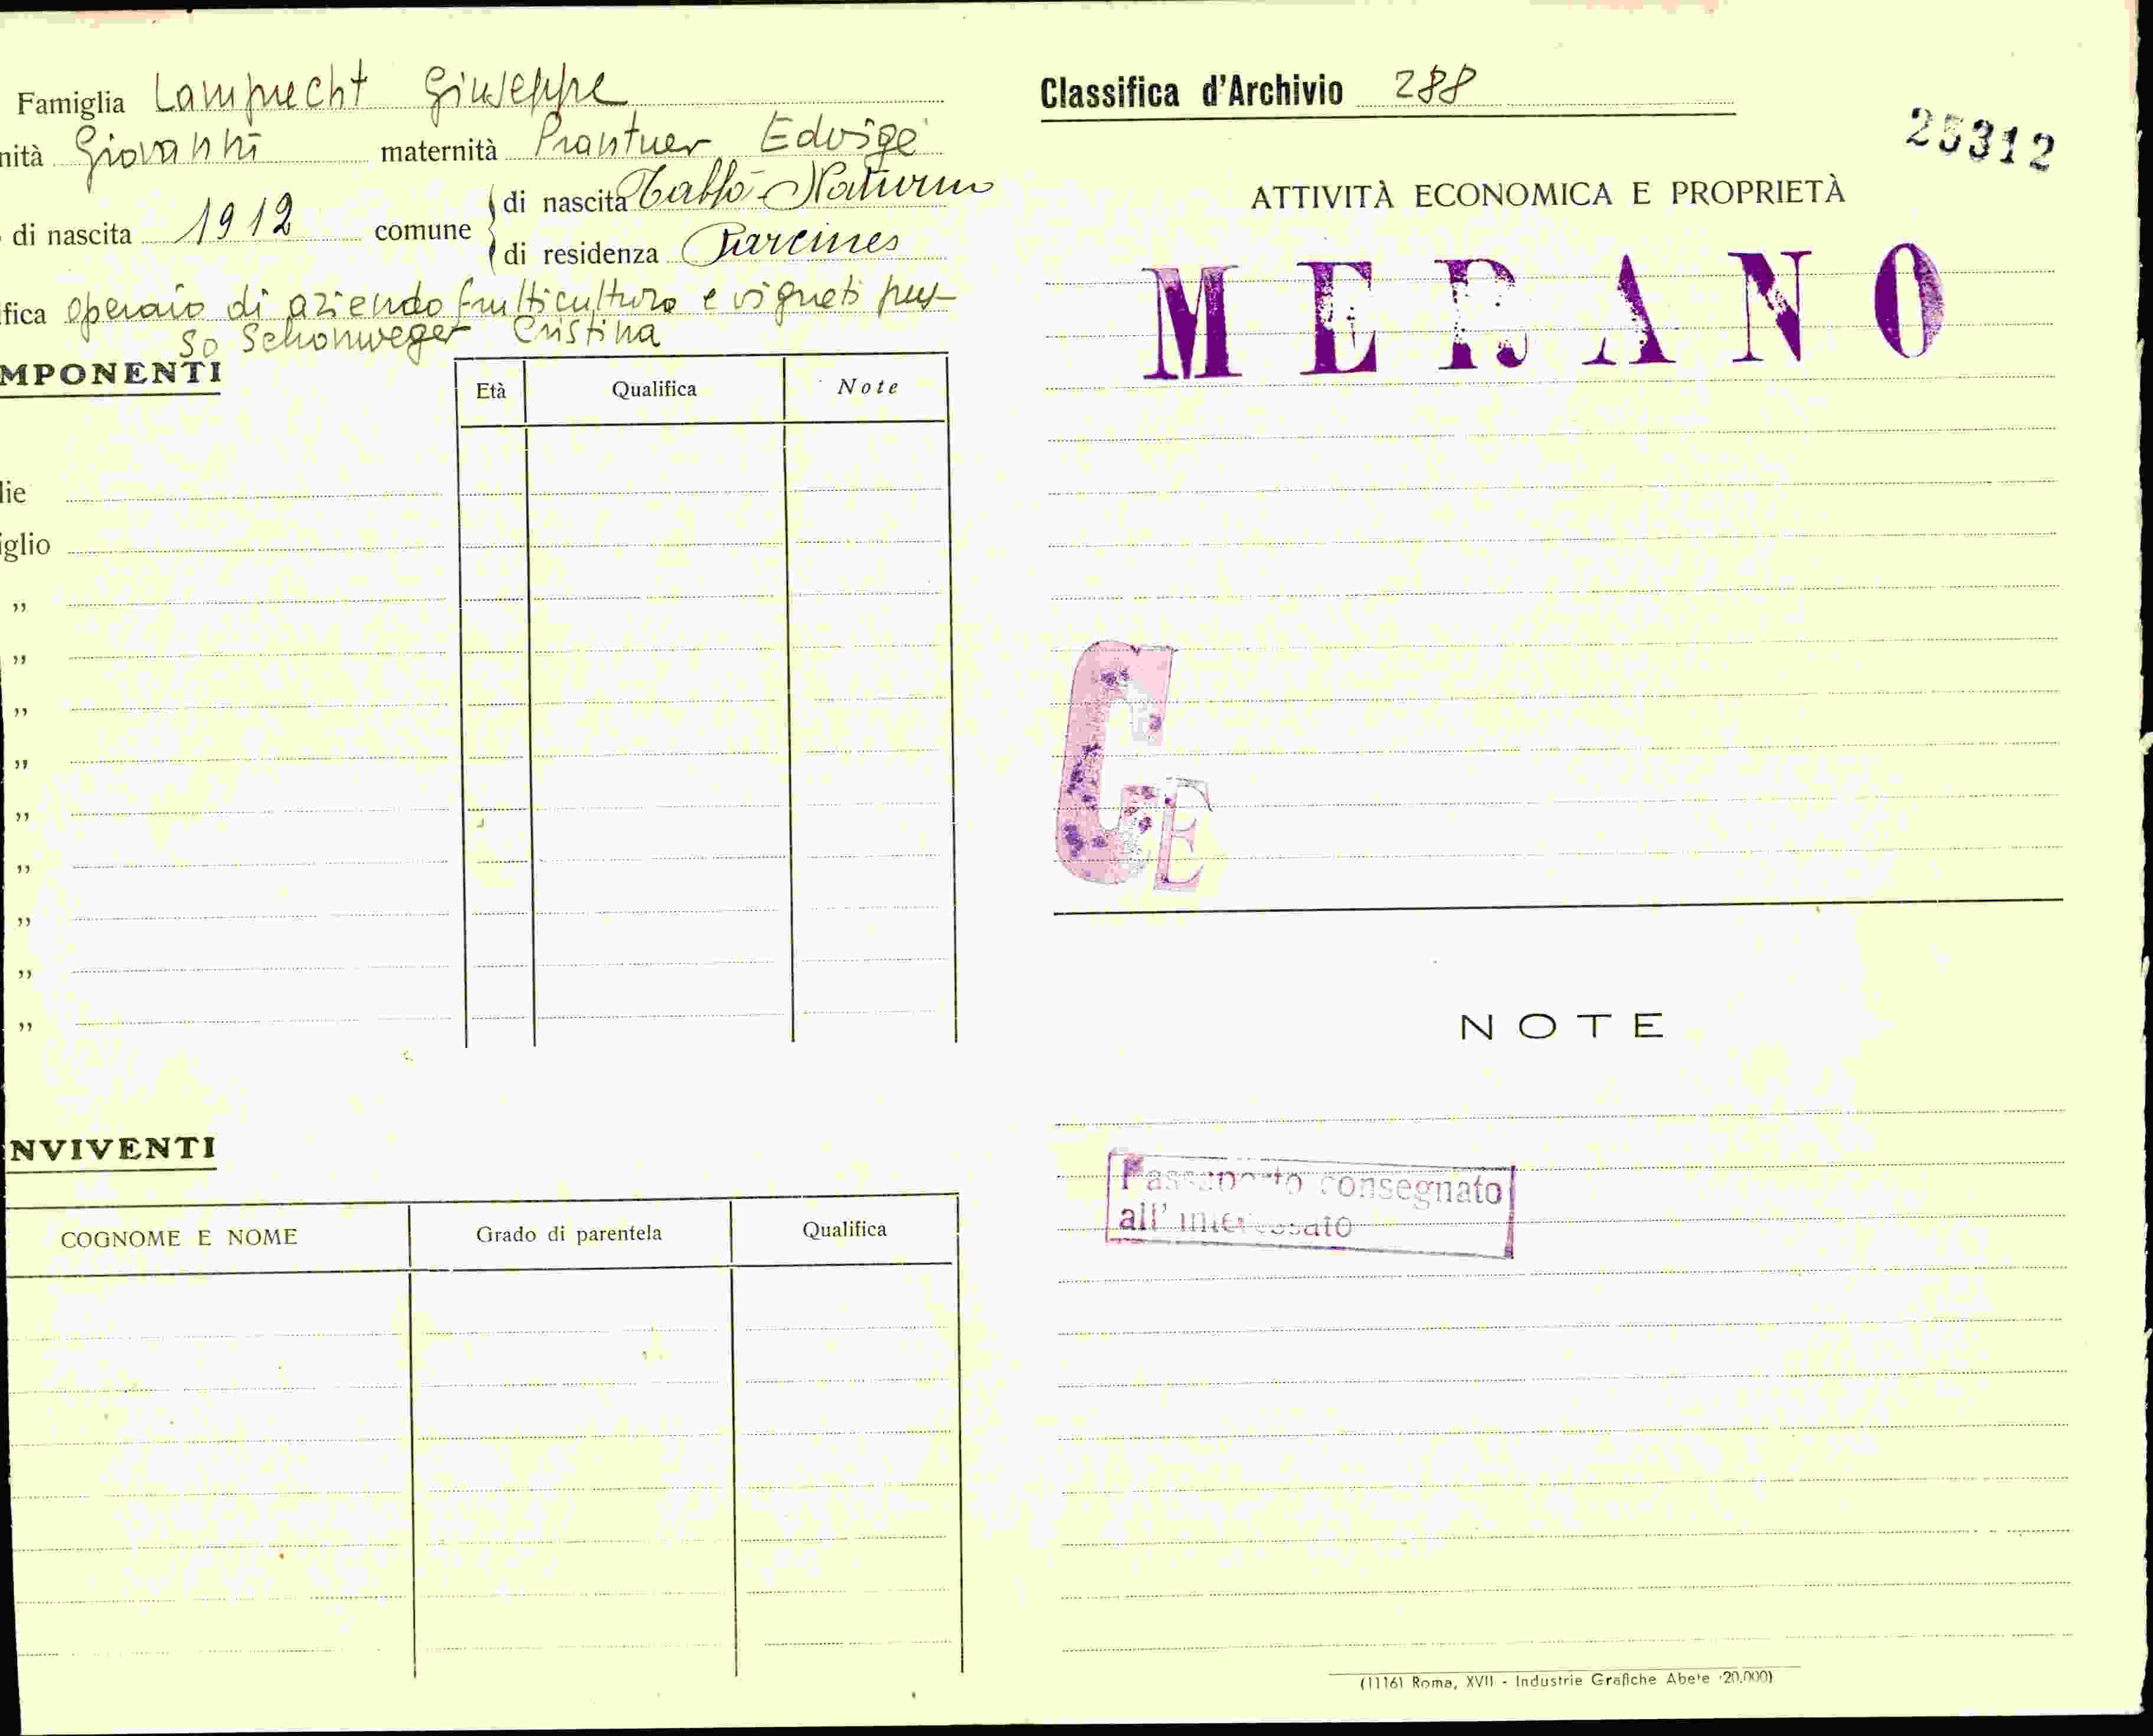 Famiglia Lamprecht Giuseppe
nità Giovanni maternità Prantner Edvige
di nascita 1912 comune di nascita Tablà-Naturno
di residenza Parcines
fica operaio di aziendo frutticulturo e vigneti pres-
so Schonweger Cristina
MPONENTI
Età Qualifica Note
lie
iglio
"
"
"
"
"
"
"
"
"
NVIVENTI
COGNOME E NOME Grado di parentela Qualifica
Classifica d'Archivio 288
25312
ATTIVITÀ ECONOMICA E PROPRIETÀ
MERANO
G E
NOTE
Passaporto consegnato
all'interessato
(11161 Roma, XVII - Industrie Grafiche Abete 20.000)